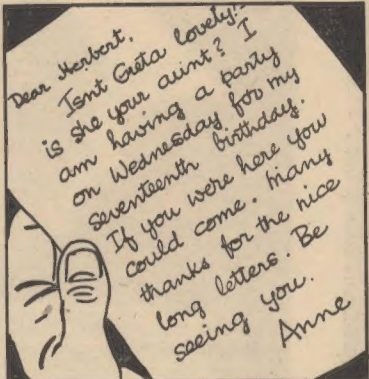 Dear Herbert,
Isnt Greta lovely!-
is she your aunt? I
am having a party
on Wednesday for my
seventeenth birthday.
If you were here you
could come. Many
thanks for the nice
long letters. Be
seeing you.
Anne